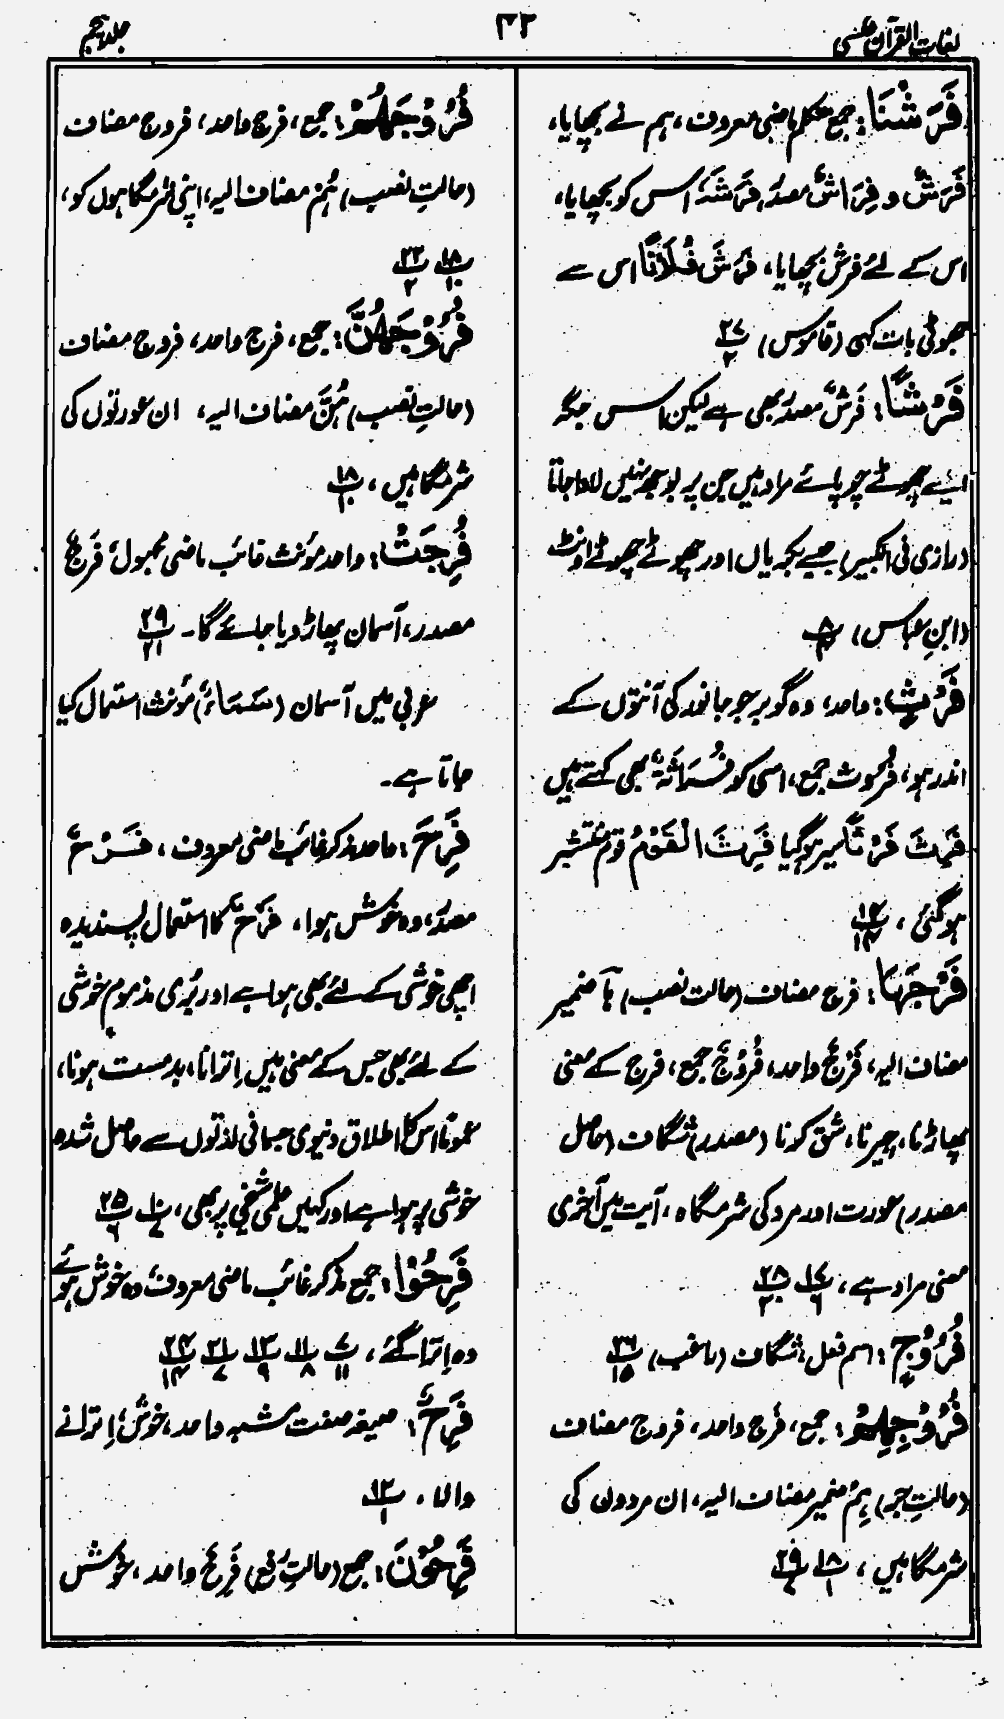 لغات القرآن عکسی
۴۲
جلد پنجم
فَرَشْنَا: جمع متکلم ماضی معروف، ہم نے بچھایا،
فَرْشٌ و فِرَاشٌ مصدر، فَرَشَہٗ اس کو بچھایا،
اس کے لئے فرش بچھایا، فَرَشَ فُلَانًا اس سے
جھوٹی بات کہی (قاموس) ۲۷/۲
فَرْشًا: فَرْشٌ مصدر بھی ہے لیکن اس جگہ
ایسے چھوٹے چوپائے مراد ہیں جن پر بوجھ نہیں لادا جاتا
(رازی فی الکبیر) جیسے بکریاں اور چھوٹے چھوٹے اونٹ
(ابنِ عباس) ۸/۴
فَرْثٍ: واحد، وہ گوبر جو جانور کی آنتوں کے
اندر ہو، فُرُوث جمع، اسی کو فُرَاثَۃٌ بھی کہتے ہیں
فَرِثَ فَرْثًا سیر ہوگیا فَرِثَ الْقَوْمُ قوم منتشر
ہوگئی، ۱۴
فَرْجَهَا: فرج مضاف (حالت نصب) ہا ضمیر
مضاف الیہ، فَرْجٌ واحد، فُرُوْجٌ جمع، فرج کے معنی
پھاڑنا، چیرنا، شق کرنا (مصدر) شگاف (حاصل
مصدر) عورت اور مرد کی شرمگاہ، آیت میں آخری
معنی مراد ہے، ۱۷/۶ ۲۸/۲۰
فُرُوْجٍ: اسم فعل، شگاف (راغب) ۲۶/۱۵
فُرُوْجِهِمْ: جمع، فرج واحد، فروج مضاف
(حالتِ جر) ہِمْ ضمیر مضاف الیہ، ان مردوں کی
شرمگاہیں، ۱۸/۱ ۲۹/۷
فُرُوْجَهُمْ: جمع، فرج واحد، فروج مضاف
(حالتِ نصب) ہُمْ مضاف الیہ، اپنی شرمگاہوں کو،
۱۸/۱۰ ۲۲/۲
فُرُوْجَهُنَّ: جمع، فرج واحد، فروج مضاف
(حالتِ نصب) ہُنَّ مضاف الیہ، ان عورتوں کی
شرمگاہیں، ۱۸/۱۰
فُرِجَتْ: واحد مؤنث غائب ماضی مجہول، فَرْجٌ
مصدر، آسمان پھاڑ دیا جائے گا۔ ۲۹/۲۱
عربی میں آسمان (سَمَاءٌ) مؤنث استعمال کیا
جاتا ہے۔
فَرِحَ: واحد مذکر غائب ماضی معروف، فَرْحٌ
مصدر، وہ خوش ہوا، فَرْحٌ کا استعمال پسندیدہ
اچھی خوشی کے لئے بھی ہوا ہے اور بُری مذموم خوشی
کے لئے بھی جس کے معنی ہیں اِترانا، بدمست ہونا،
عموماً اس کا اطلاق دنیوی جسمانی لذتوں سے حاصل شدہ
خوشی پر ہوا ہے اور کہیں علمی شیخی پر بھی، ۱۰/۱۷ ۲۵/۶
فَرِحُوْا: جمع مذکر غائب ماضی معروف، وہ خوش ہوئے
وہ اِترا گئے، ۷/۱۱ ۱۱/۸ ۱۳/۹ ۲۱/۷ ۲۴/۱۴
فَرِحٌ: صیغہ صفت مشبہ واحد، خوش، اِترانے
والا، ۱۲/۱
فَرِحُوْنَ: جمع (حالتِ رفع) فَرِحٌ واحد، خوش